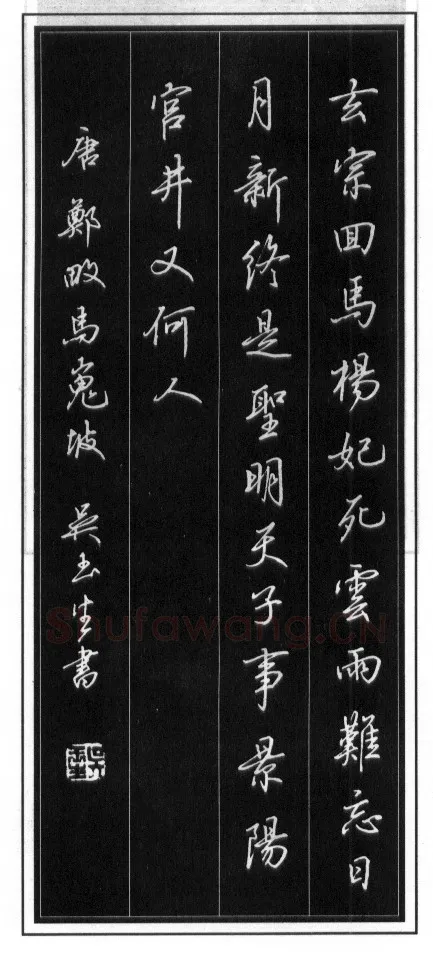 玄宗回馬楊妃死雲雨難忘日
月新終是聖明天子事景陽
宮井又何人
唐鄭畋馬嵬坡 吳玉生書
Shufawang.CN